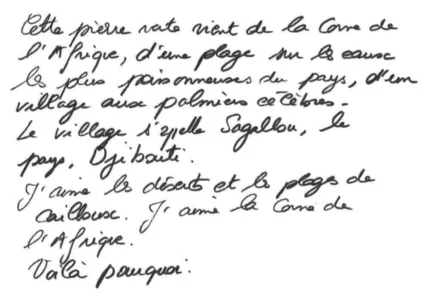 Cette pierre rate vient de la Corne de
l'Afrique, d'une plage sur les eaux
les plus poissonneuses du pays, d'un
village aux palmiers célèbres.
Le village s'appelle Sagallou, le
pays, Djibouti.
J'aime les déserts et les plages de
cailloux. J'aime la Corne de
l'Afrique.
Voilà pourquoi.